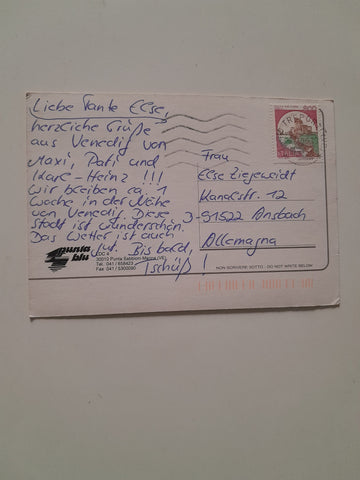 Liebe Tante Else,
herzliche Grüße
aus Venedig von
Maxi, Pati und
Karl-Heinz !!!
Wir bleiben ca. 1
Woche in der Nähe
von Venedig. Diese
Stadt ist wunderschön.
Das Wetter ist auch
gut. Bis bald,
Tschüß!
Frau
Else Ziegeweidt
Kanalstr. 12
91522 Ansbach
Allemagna
punta
blu
30010 Punta Sabbioni-Marina (VE)
Tel. 041 / 658423
Fax 041 / 5300090
NON SCRIVERE SOTTO - DO NOT WRITE BELOW